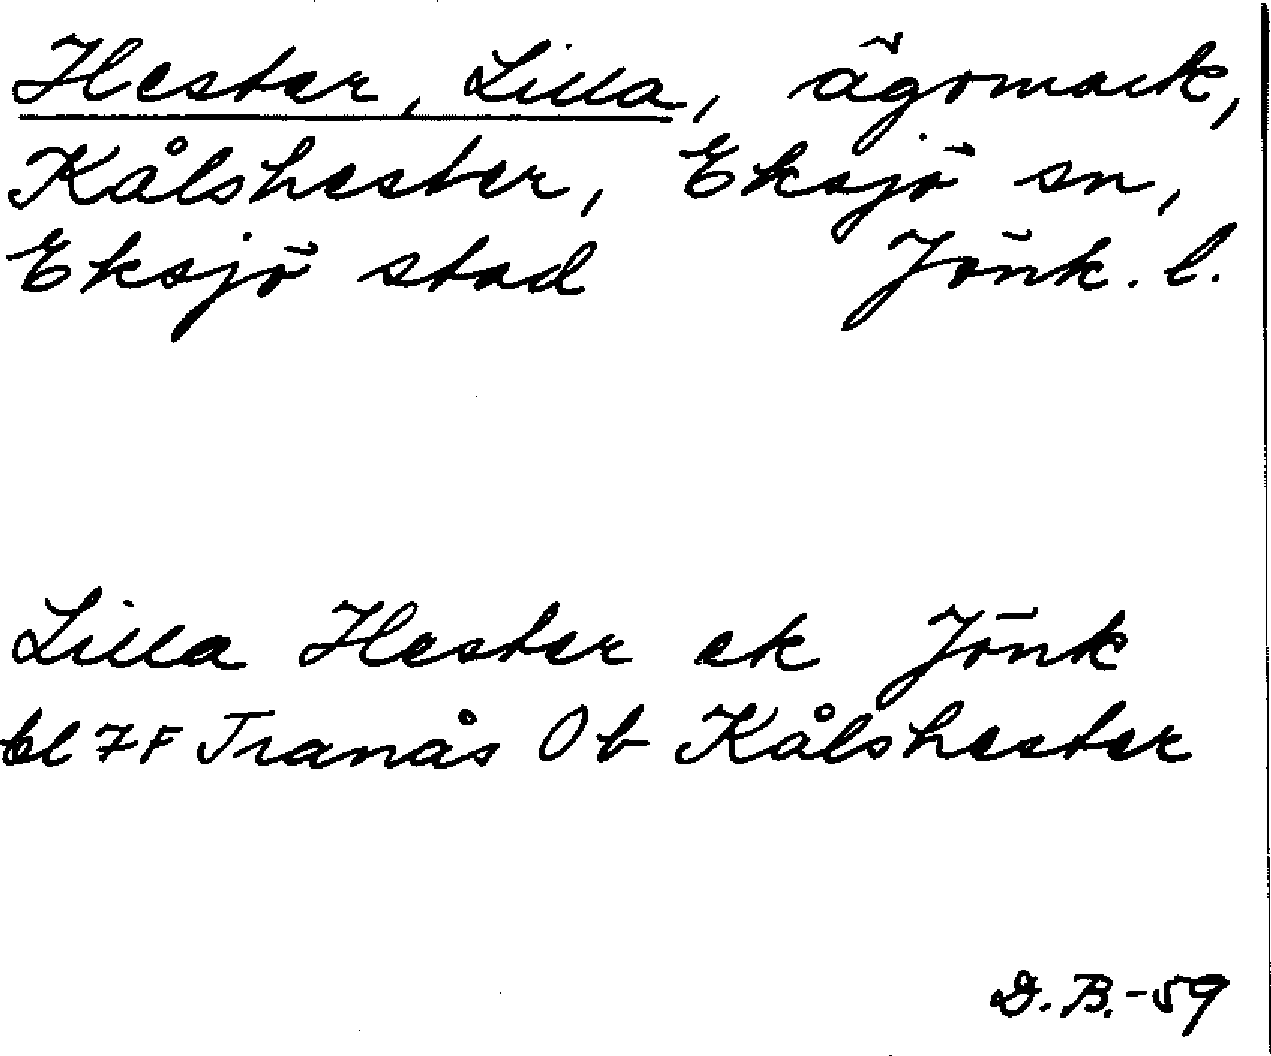 Hester, Lilla, ägomark,
Kålshester, Eksjö sn,
Eksjö stad Jönk. l.
Lilla Hester ek Jönk
bl 7F Tranås Ob Kålshester
D.B.-59